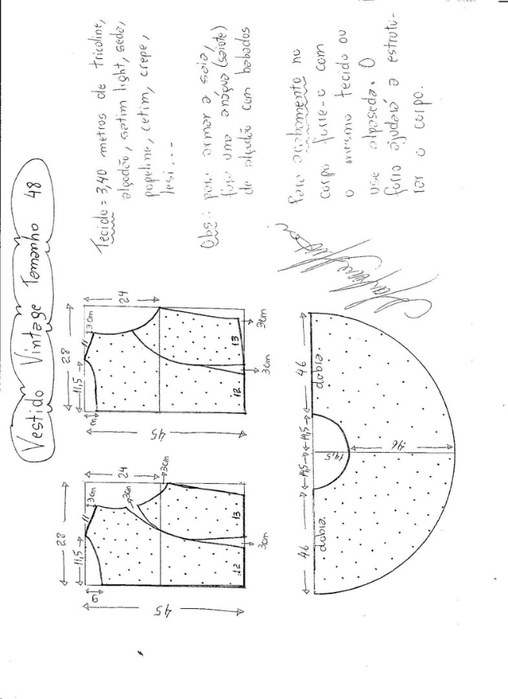 Vestido Vintage Tamanho 48
Tecido = 3,40 metros de tricoline,
algodão, cetim light, seda,
popeline, cetim, crepe,
lesi...
Obs.: para armar a saia,
faça uma anágua (saiote)
de algodão com babados
Para acabamento no
corpo forre-o com
o mesmo tecido ou
use alpaseda. O
forro ajudará a estrutu-
rar o corpo.
28
11,5
11
13cm
24
3cm
3cm
9
45
12
13
3cm
28
11,5
11
13cm
24
45
12
13
3cm
3cm
46
14,5
14,5
46
dobra
dobra
14,5
46